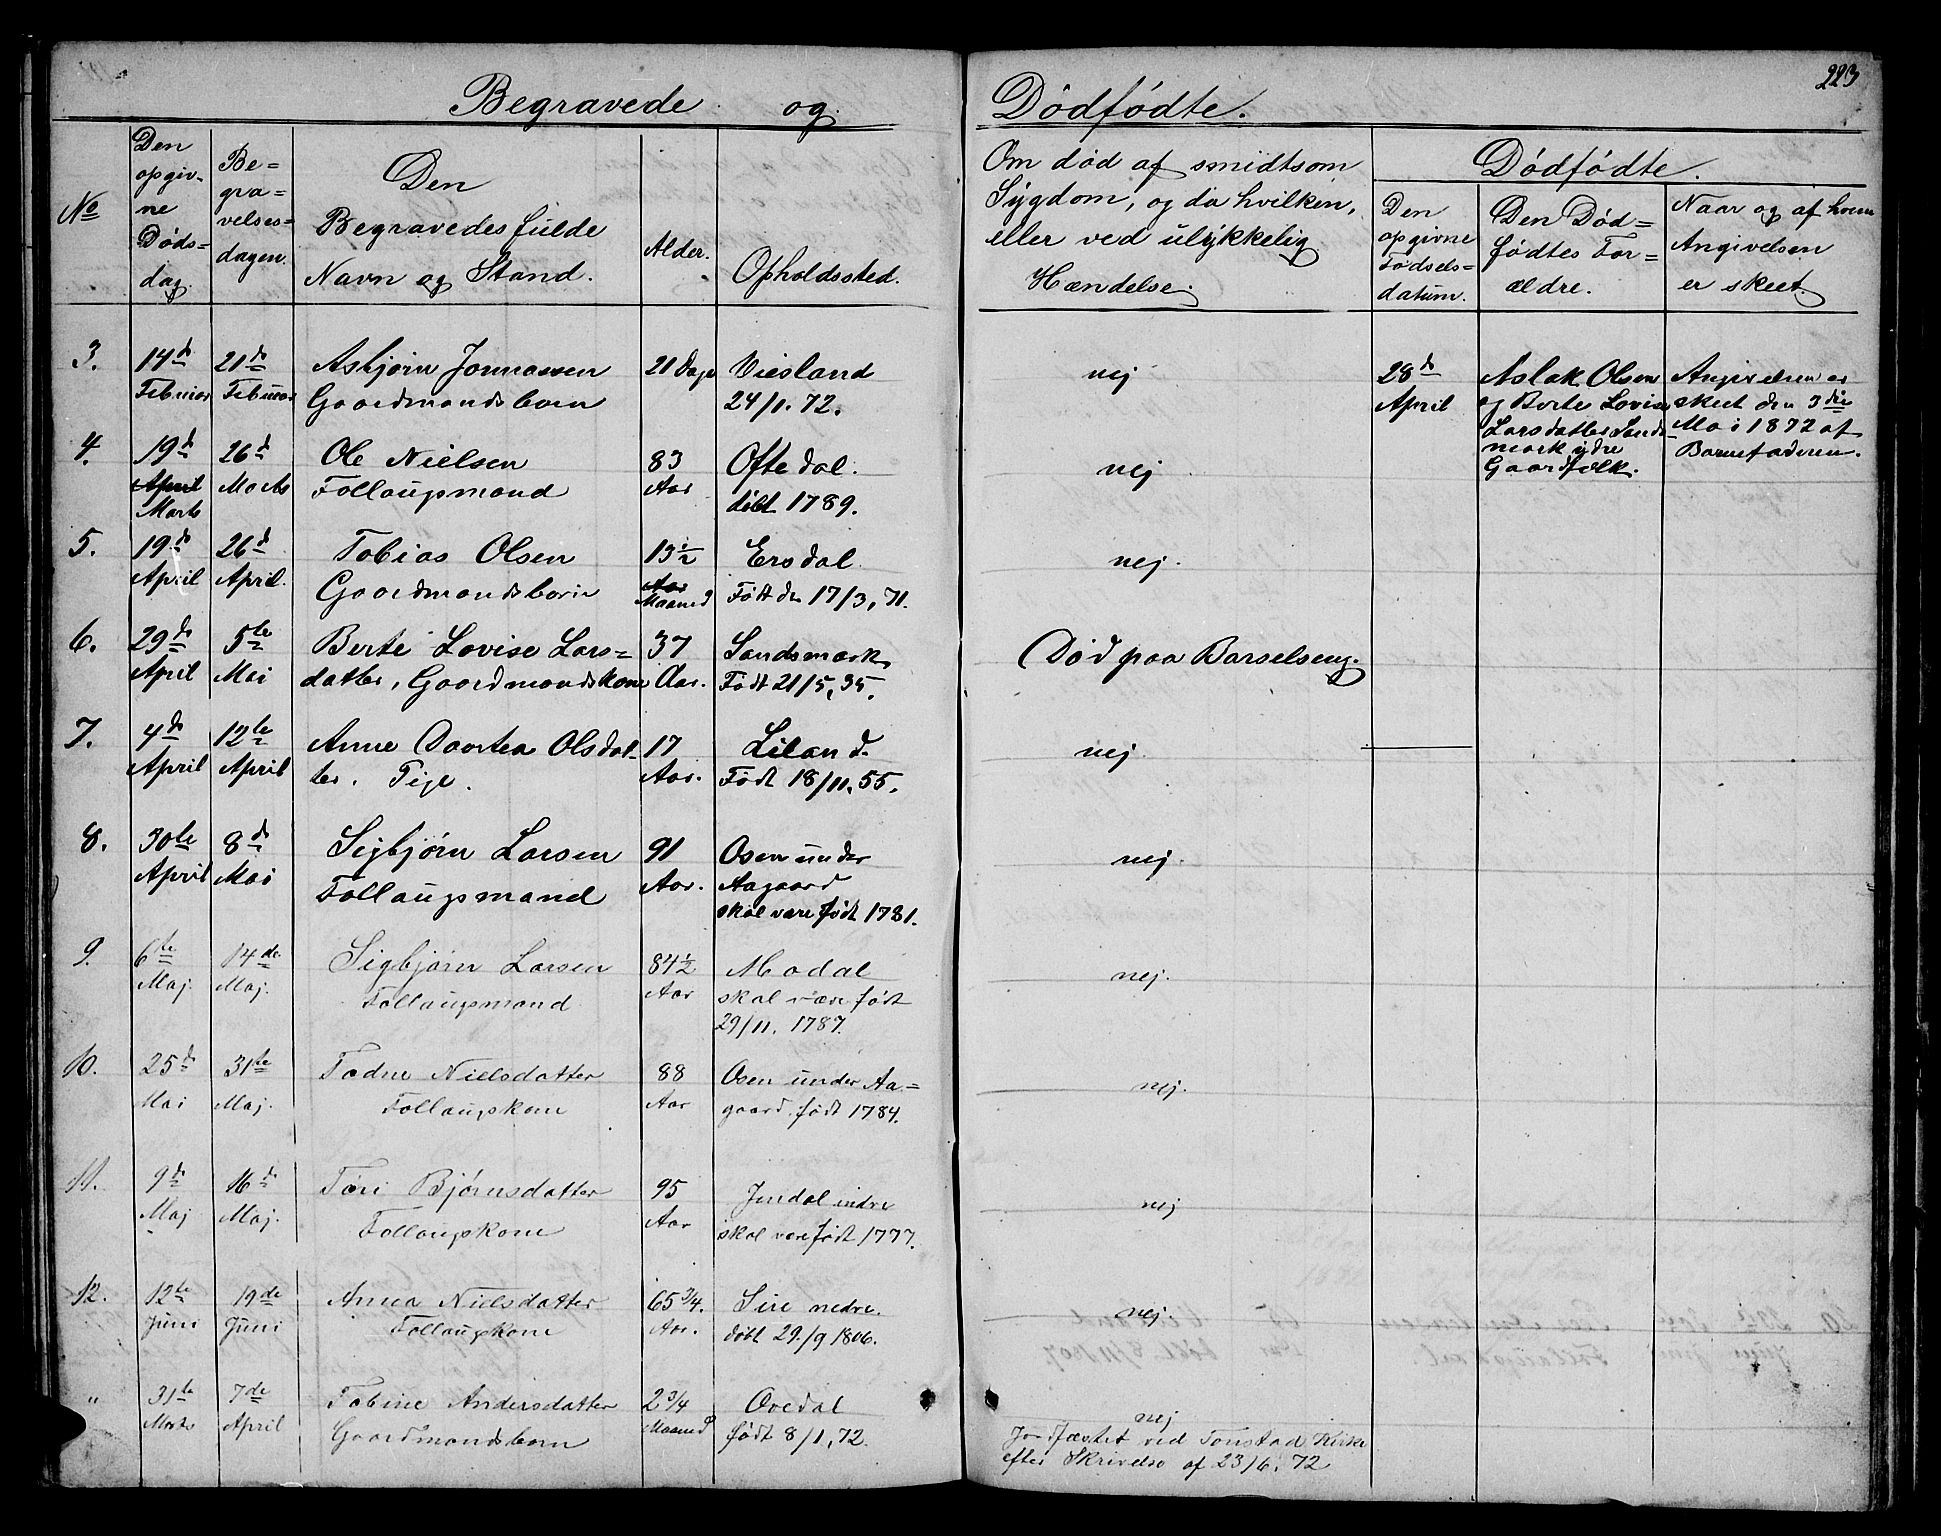 223
Begravede og Dødfødte.
No
Den opgivne Dødsdag.
Begravelsesdagen.
Den Begravedes fulde Navn og Stand.
Alder.
Opholdssted.
Om død af smidtsom
Sygdom, og da hvilken,
eller ved ulykkelig
Hændelse.
Dødfødte.
Den opgivne Fødselsdatum.
Den Dødfødtes Forældre.
Naar og af hvem Angivelsen er skeet.
3. 14d 21d Asbjørn Jonnassen 21 Dage Viesland nej
Februar Februar Gaardmandsbarn 24/1. 72.
28d April
Aslak Olsen
og Berte Lovise
Larsdatter Sands-
mark ydre
Gaardfolk.
Angivelsen er
skeet den 3die
Mai 1872 af
Barnefaderen.
4. 19d 26d Ole Nielsen 83 Oftedal. nej
April Marts Follaugsmand Aar døbt 1789.
Marts
5. 19d 26d Tobias Olsen 13½ Ersdal nej.
April April. Gaardmandsbarn Aar Født den 17/3, 71.
Maaned
6. 29d 5te Berte Lovise Lars= 37 Sandsmark Død paa Barselseng.
April Mai datter, Gaardmandskone Aar. Født 21/5, 35.
7. 4d 12te Anne Daortea Olsdat- 17 Liland. nej
April April ter. Pige. Aar. Født 18/11, 55.
8. 30te 8d Sigbjørn Larsen 91 Osen under nej.
April Mai Follaugsmand Aar. Aagaard
skal være født 1781.
9. 6te 14de Sigbjørn Larsen 84½ Modal nej.
Maj. Maj. Follaugsmand Aar skal være født
29/11, 1787.
10. 25d 31te Todne Nielsdatter 88 Osen under Aa= nej.
Mai Maj. Follaugskone Aar gaard. født 1784.
11. 9d 16d Tori Bjørnsdatter 95 Jindal indre nej
Maj Maj. Follaugskone Aar skal være født 1777.
12. 12te 19de Anna Nielsdatter 65 3/4. Sire nedre. nej.
Juni Juni Follaugskone Aar. døbt 29./9 1806.
" 31te 7de Tobine Andersdatter 2 3/4 Ovedal nej
Marts April Gaardmandsbarn Maaned født 8/1, 72.
Jordfæstet ved Tonstad Kirke
efter Skrivelse af 23/6. 72